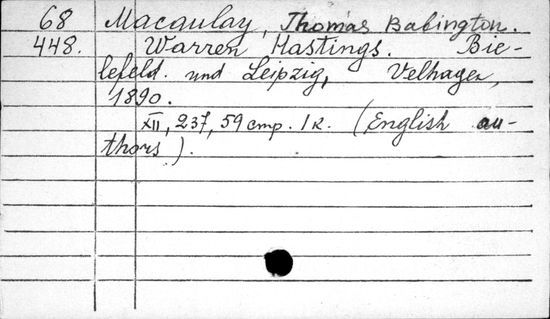 68 Macaulay, Thomas Babington.
448. Warren Hastings. Bie-
lefeld. und Leipzig, Velhagen,
1890.
XII, 237, 59 cmp. 1 к. (English au-
thors).